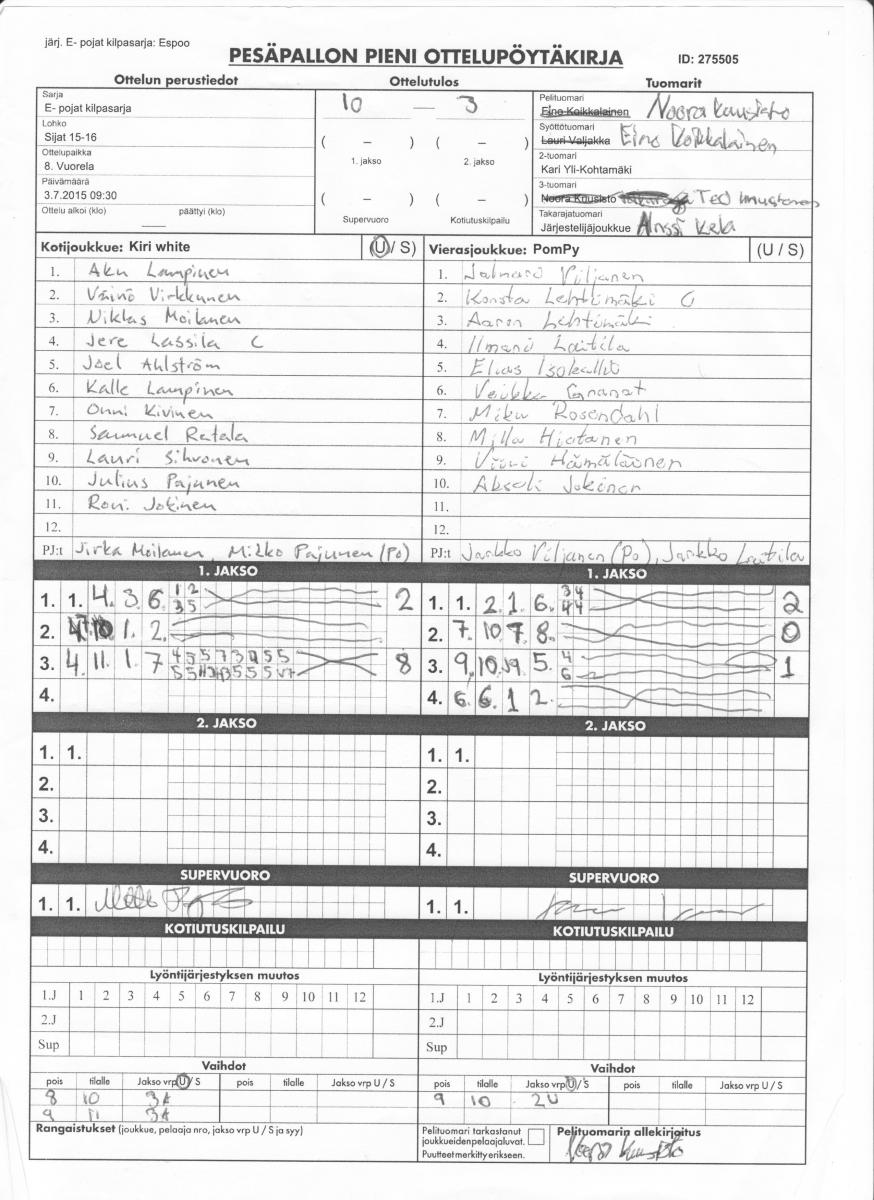 järj. E- pojat kilpasarja: Espoo
PESÄPALLON PIENI OTTELUPÖYTÄKIRJA
ID: 275505
Ottelun perustiedot
Ottelutulos
Tuomarit
Sarja
E- pojat kilpasarja
Lohko
Sijat 15-16
Ottelupaikka
8. Vuorela
Päivämäärä
3.7.2015 09:30
Ottelu alkoi (klo) päättyi (klo)
10 — 3
( – ) ( – )
1. jakso 2. jakso
( – ) ( – )
Supervuoro Kotiutuskilpailu
Pelituomari
Eino Koikkalainen Noora Kuusisto
Syöttötuomari
Lauri Valjakka Eino Koikkalainen
2-tuomari
Kari Yli-Kohtamäki
3-tuomari
Noora Kuusisto Teo
Takarajatuomari
Järjestelijäjoukkue Anssi Kela
Kotijoukkue: Kiri white (U / S)
1. Aku Lampinen
2. Väinö Virkkunen
3. Niklas Moilanen
4. Jere Lassila C
5. Joel Ahlström
6. Kalle Lampinen
7. Onni Kivinen
8. Samuel Ratala
9. Lauri Sihvonen
10. Julius Pajunen
11. Roni Jokinen
12.
PJ:t Jirka Moilanen, Mirko Pajunen (Po)
Vierasjoukkue: PomPy (U / S)
1. Jalmari Viljanen
2. Konsta Lehtimäki C
3. Aaron Lehtimäki
4. Ilmari Laitila
5. Elias Isokallio
6. Veikka Granat
7. Miku Rosendahl
8. Milla Hietanen
9. Viivi Hämäläinen
10. Akseli Jokinen
11.
12.
PJ:t Jarkko Viljanen (Po), Jarkko Laitila
1. JAKSO
1. 1. 4. 3. 6. 2
2. 1. 2.
3. 4. 11. 1. 7 8
4.
1. JAKSO
1. 1. 2. 1. 6. 2
2. 7. 10. 7. 8. 0
3. 9. 10. 5. 1
4. 6. 6. 1 2.
2. JAKSO
1. 1.
2.
3.
4.
2. JAKSO
1. 1.
2.
3.
4.
SUPERVUORO
1. 1.
SUPERVUORO
1. 1.
KOTIUTUSKILPAILU
KOTIUTUSKILPAILU
Lyöntijärjestyksen muutos
1.J 1 2 3 4 5 6 7 8 9 10 11 12
2.J
Sup
Lyöntijärjestyksen muutos
1.J 1 2 3 4 5 6 7 8 9 10 11 12
2.J
Sup
Vaihdot
pois tilalle Jakso vrp U / S pois tilalle Jakso vrp U / S
8 10 3A
9 11 3A
Vaihdot
pois tilalle Jakso vrp U / S pois tilalle Jakso vrp U / S
9 10 2U
Rangaistukset (joukkue, pelaaja nro, jakso vrp U / S ja syy)
Pelituomari tarkastanut
joukkueidenpelaajaluvat.
Puutteet merkitty erikseen.
Pelituomarin allekirjoitus
Noora Kuusisto